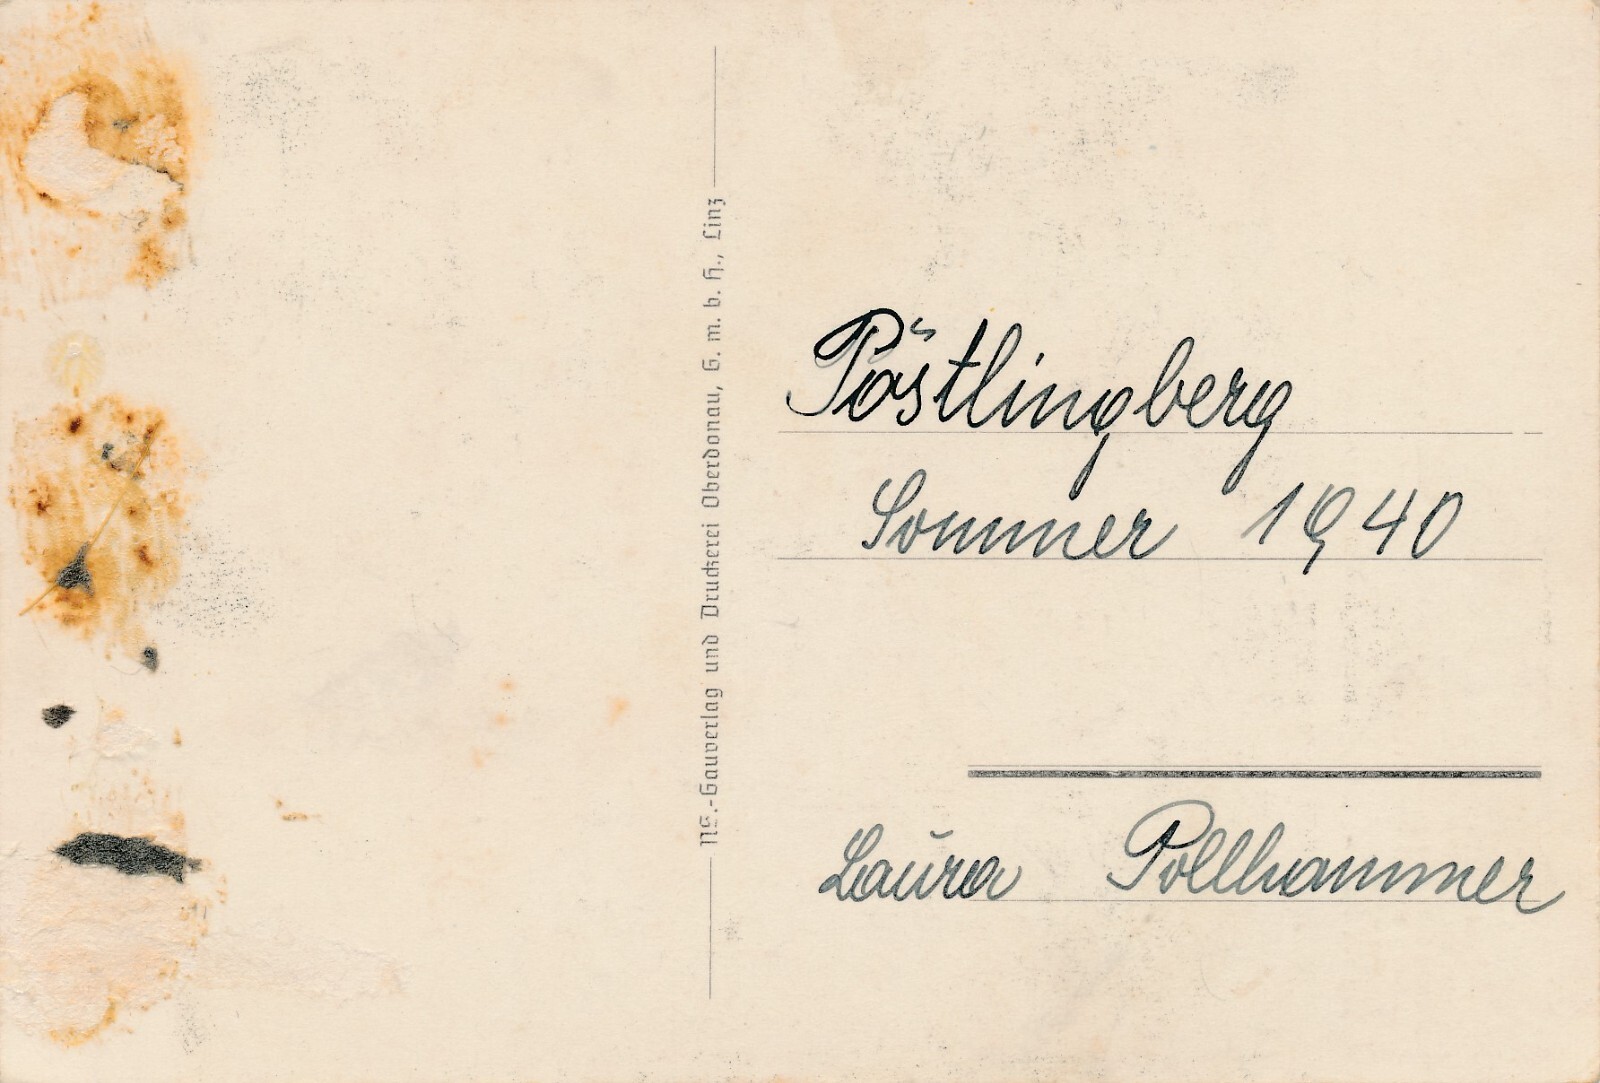 NS.-Gauverlag und Druckerei Oberdonau, G. m. b. H., Linz
Pöstlingberg
Sommer 1940
Laura Pollhammer